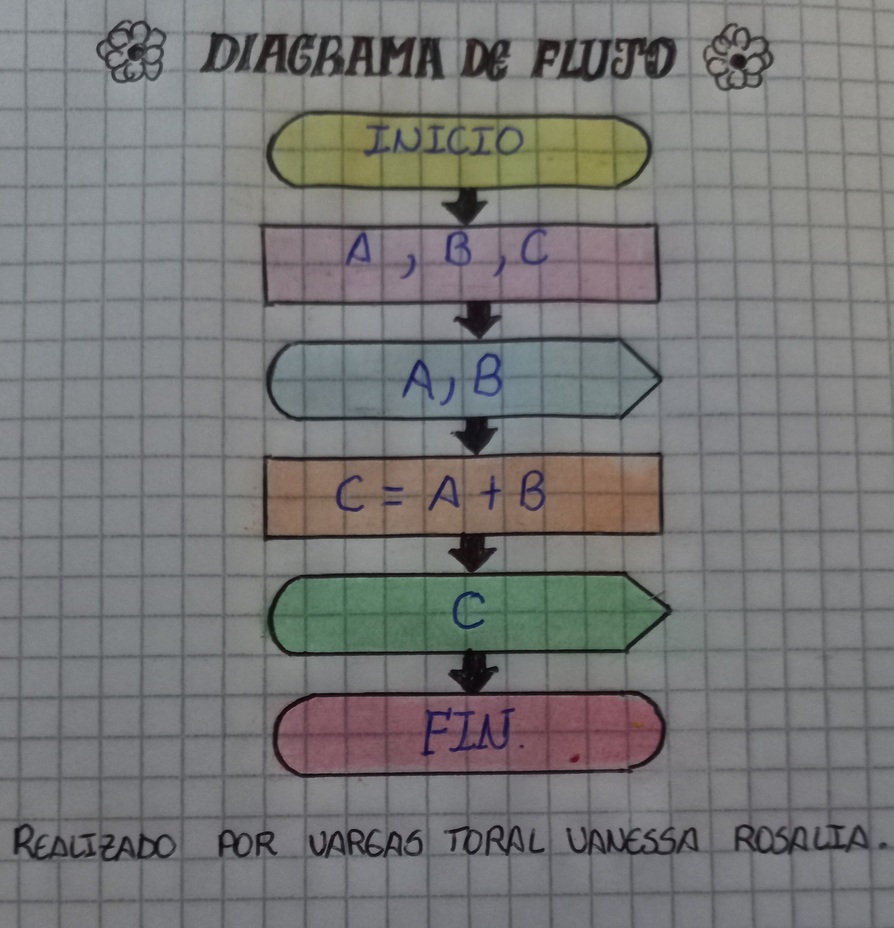 DIAGRAMA DE FLUJO
INICIO
A , B , C
A, B
C = A + B
C
FIN.
REALIZADO POR VARGAS TORAL VANESSA ROSALIA.